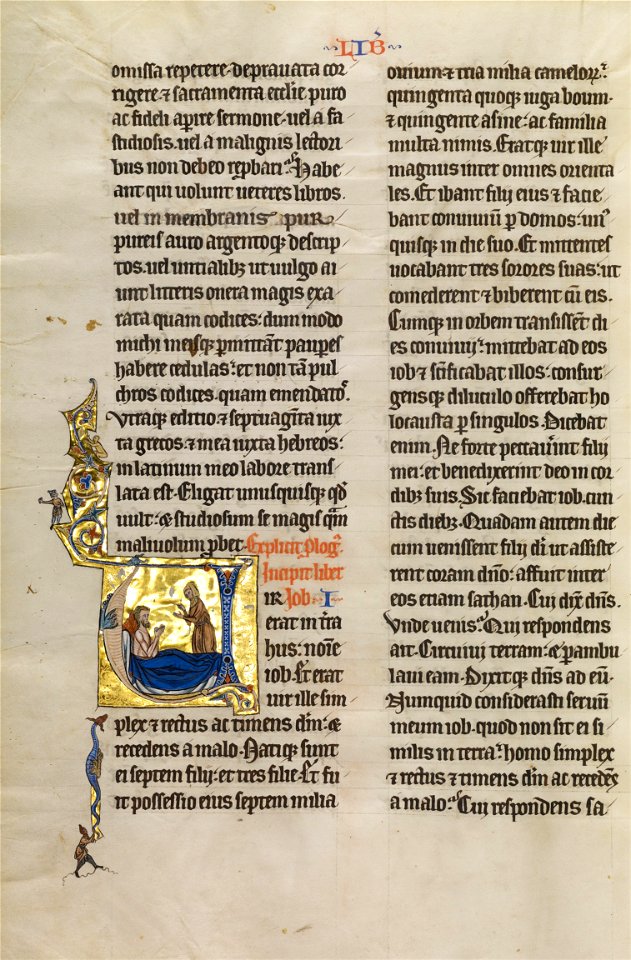 LIB
omissa repetere· deprauata cor
rigere ⁊ sacramenta ecclie puro
ac fideli aperire sermone· uel a fa
stidiosis· uel a malignis lectori
bus non debeo reprobari· Habe
ant qui uolunt ueteres libros·
uel in membranis pur
pureis auro argentoqꝫ descrip
tos· uel uncialibꝫ ut uulgo ai
unt litteris onera magis exa
rata quam codices· dum modo
michi meisqꝫ ꝑmittant pauꝑes
habere cedulas· et non tam pul
chros codices· quam emendatos
Vtraqꝫ editio ⁊ septuaginta iux
ta grecos· ⁊ mea iuxta hebreos·
in latinum meo labore trans
lata est· Eligat unusquisqꝫ qđ
uult· ⁊ studiosum se magis qͣm
maliuolum ꝓbet· Explicit ꝓlogꝰ
Incipit liber
Iob· I
VIR
erat in tra
hus· noīe
iob· Et erat
uir ille sim
plex ⁊ rectus ac timens dm̄· ⁊
recedens a malo· Natiqꝫ sunt
ei septem filij· et tres filie· Et fu
it possessio eius septem milia
ouium· ⁊ tria milia camelorꝝ·
quingenta quoqꝫ iuga boum·
⁊ quingente asine· ac familia
multa nimis· Eratqꝫ uir ille
magnus inter omnes orienta
les· Et ibant filij eius ⁊ facie
bant conuiuiū ꝑ domos· unꝰ
quisqꝫ in die suo· Et mittentes
uocabant tres sorores suas· ut
comederent ⁊ biberent cū eis·
Cumqꝫ in orbem transissent di
es conuiuij· mittebat ad eos
iob ⁊ sc̄ificabat illos· consur
gensqꝫ diluculo offerebat ho
locausta ꝑ singulos· Dicebat
enim· Ne forte peccauerint filij
mei· et benedixerint deo in cor
dibꝫ suis· Sic faciebat iob cun
ctis diebꝫ· Quadam autem die
cum uenissent filij dī ut assiste
rent coram dn̄o· affuit inter
eos etiam sathan· Cui dixit dn̄s·
Vnde uenis· Qui respondens
ait· Circuiui terram· ⁊ perambu
laui eam· Dixitqꝫ dn̄s ad eū·
Nunquid considerasti seruū
meum iob· quod non sit ei si
milis in terra· homo simplex
⁊ rectus ⁊ timens dm̄ ac recedēs
a malo· Cui respondens sa